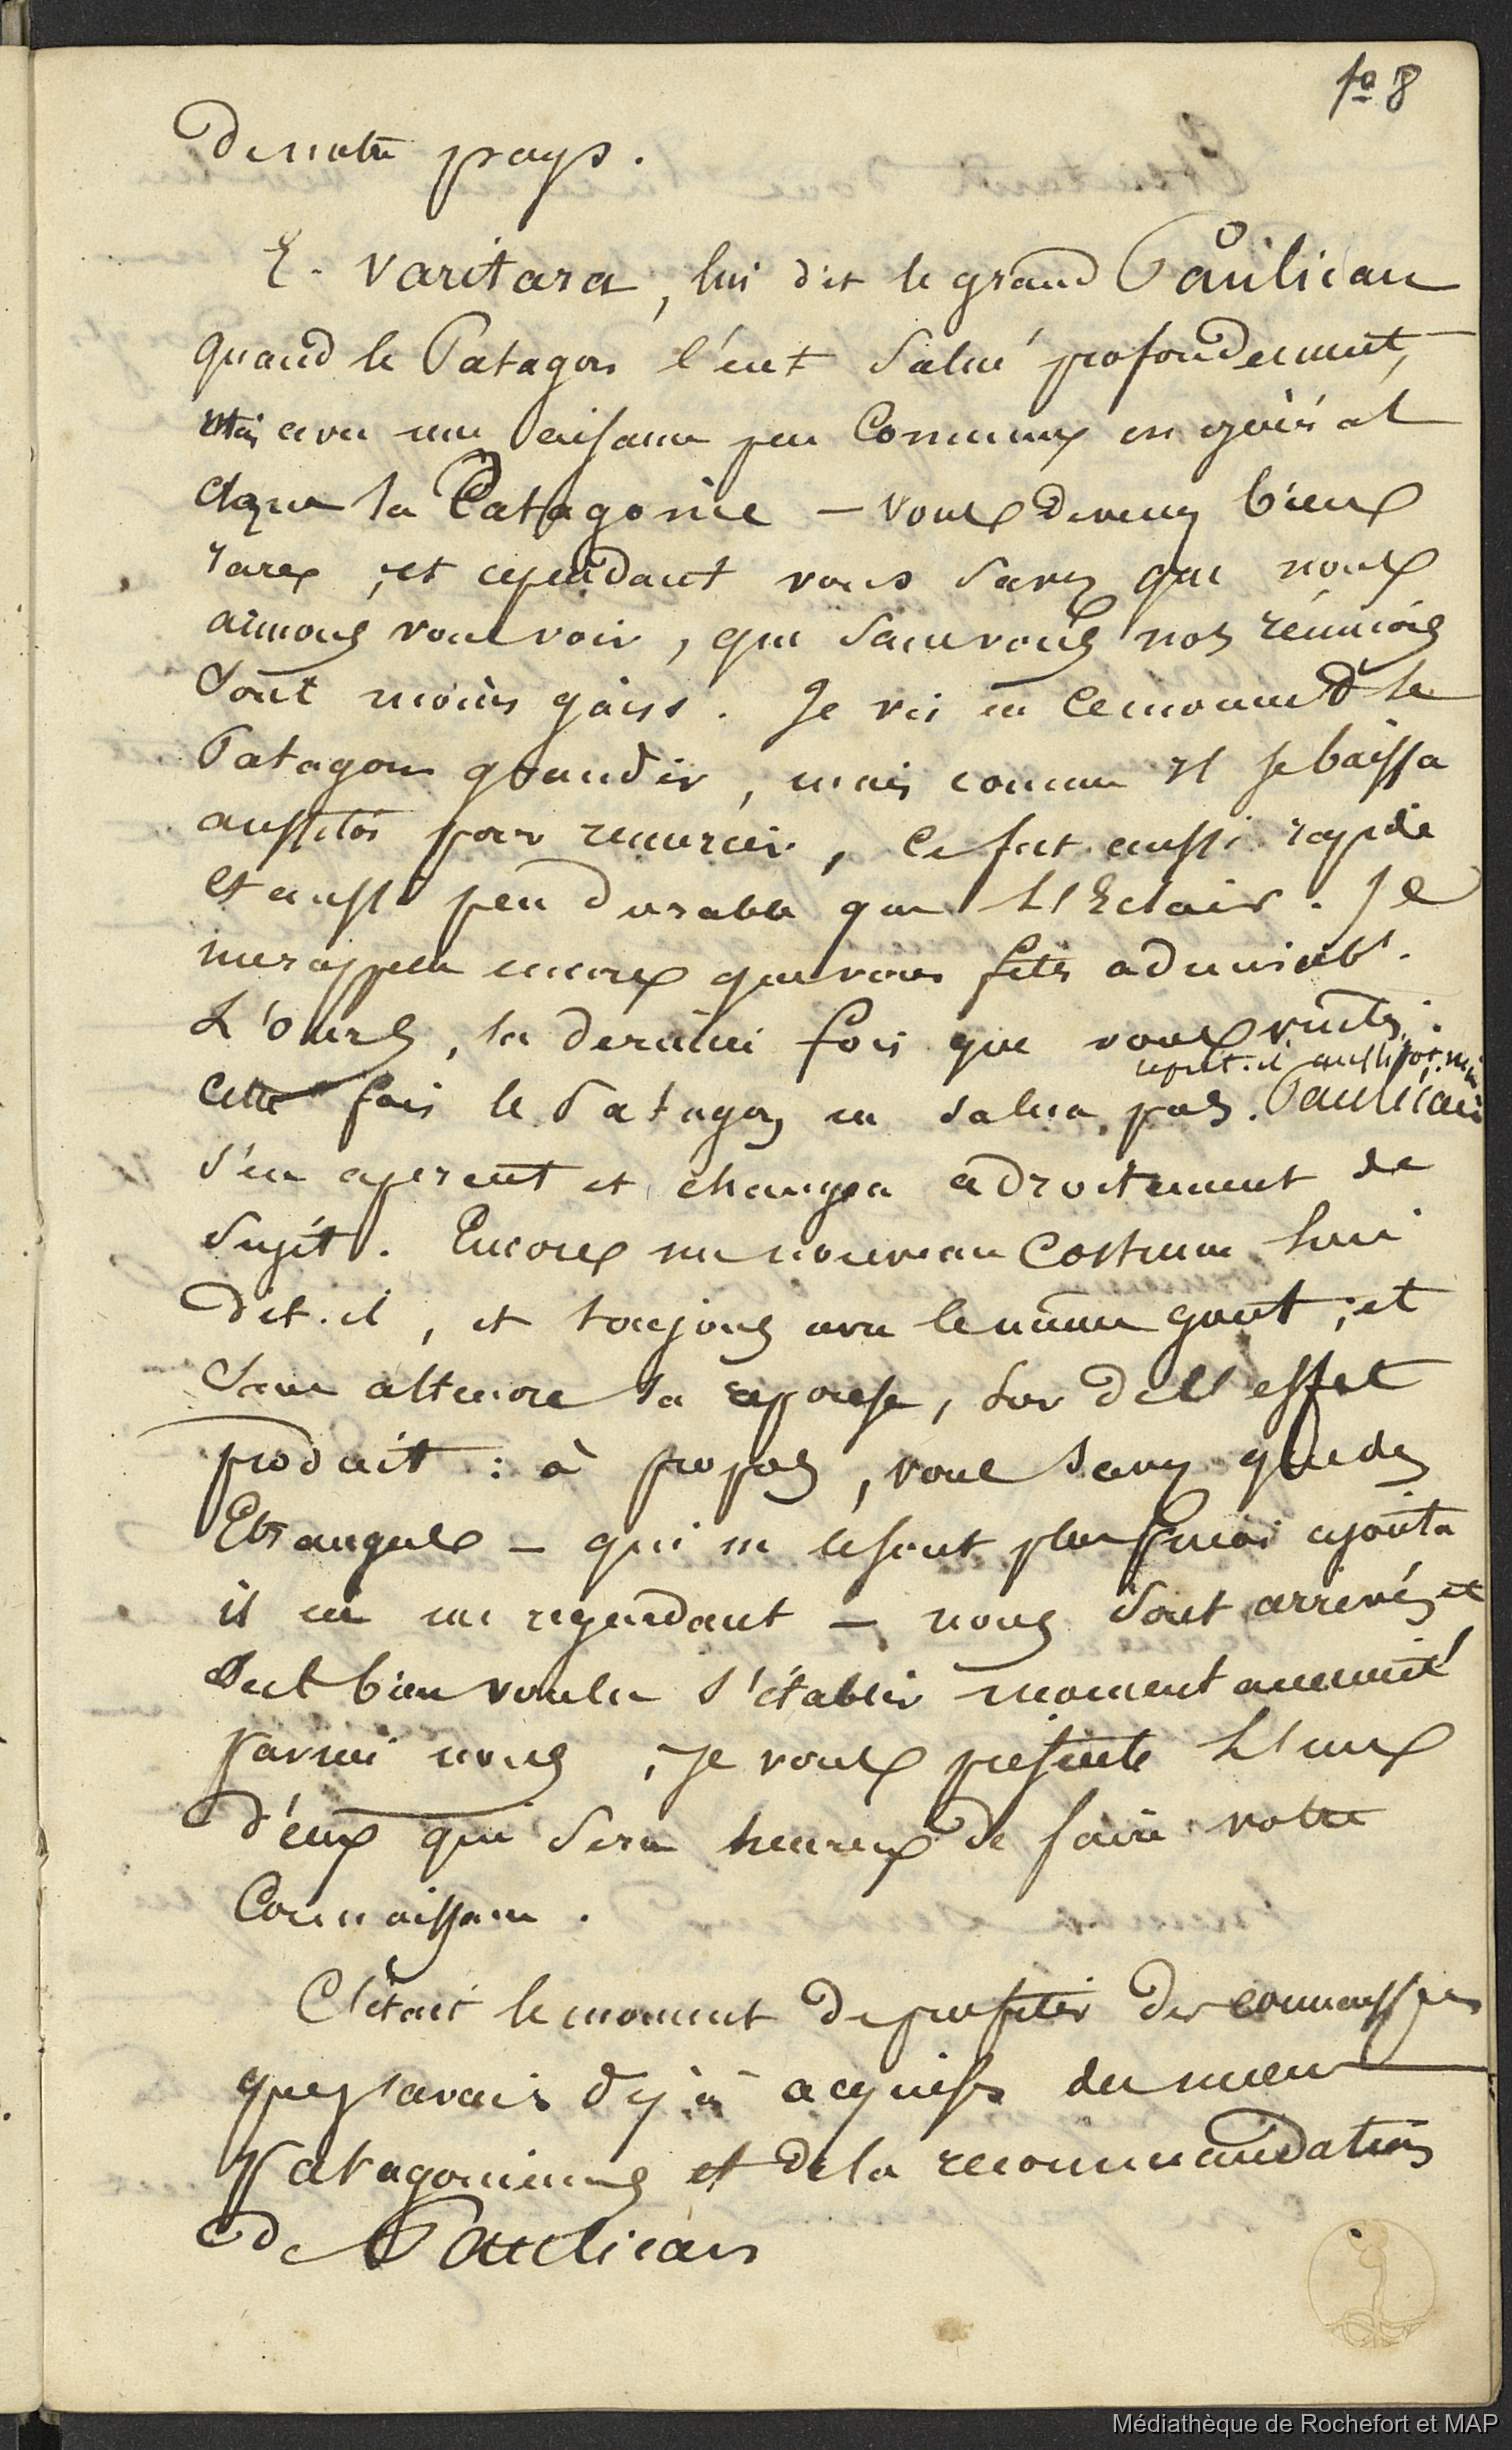 fº 8
de notre pays.
E. Varitara, lui dit le grand Paülican
quand le Patagon l'eut salué profondement,
mais avec une aisance peu commune en général
dans la Patagonie — vous devenez bien
rare, et cependant vous savez que nous
aimons vous voir, que sans vous nos réunions
sont moins gaies. Je vis en ce moment le
Patagon grandir, mais comme il se baissa
aussitôt pour remercier, ce fut aussi rapide
et aussi peu durable que l'Eclair. Je
me rappelle encore que vous fites admirabt.
L'ours, la dernière fois que vous vintes.
reprit-il aussitôt. mais
cette fois le Patagon ne salua pas. Paulican
s'en aperçut et changea adroitement de
sujet. Encore un nouveau costume lui
dit-il, et toujours avec le même gout; et
sans attendre la réponse, sur de l'effet
produit: à propos, vous savez que des
Etrangers — qui ne le sont plus pour moi ajouta
il en me regardant — nous sont arrivés et
ont bien voulu s'établir momentanément
parmi nous, je vous présente l'un
d'eux qui sera heureux de faire votre
connaissance.
C'était le moment de profiter des connaissances
que j'avais déjà acquises des mœurs
patagoniennes et de la recommandation
de Paulican
Médiathèque de Rochefort et MAP